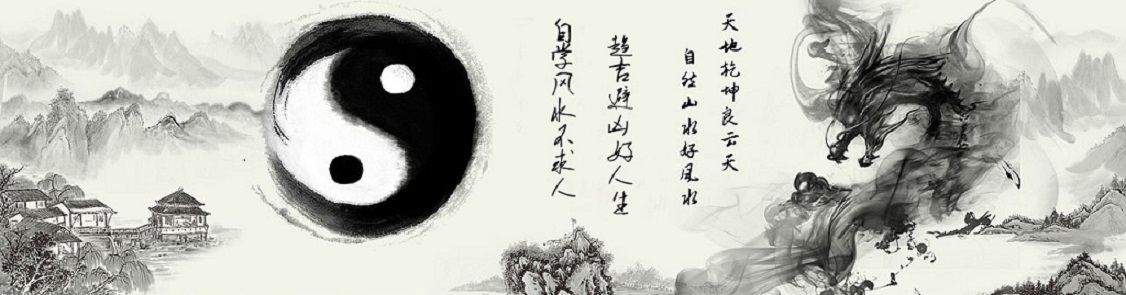 天地乾坤良云天
自然山水好风水
趋吉避凶好人生
自学风水不求人